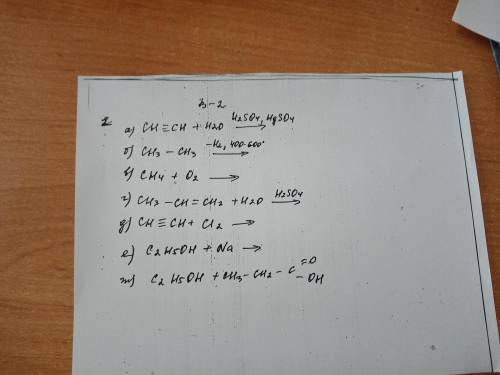 З-2
1
а) CH≡CH + H2O H2SO4, HgSO4 →
б) CH3 - CH3 -H2, 400-600° →
в) CH4 + O2 →
г) CH3 - CH = CH2 + H2O H2SO4 →
д) CH≡CH + Cl2 →
е) C2H5OH + Na →
ж) C2H5OH + CH3 - CH2 - C =O - OH